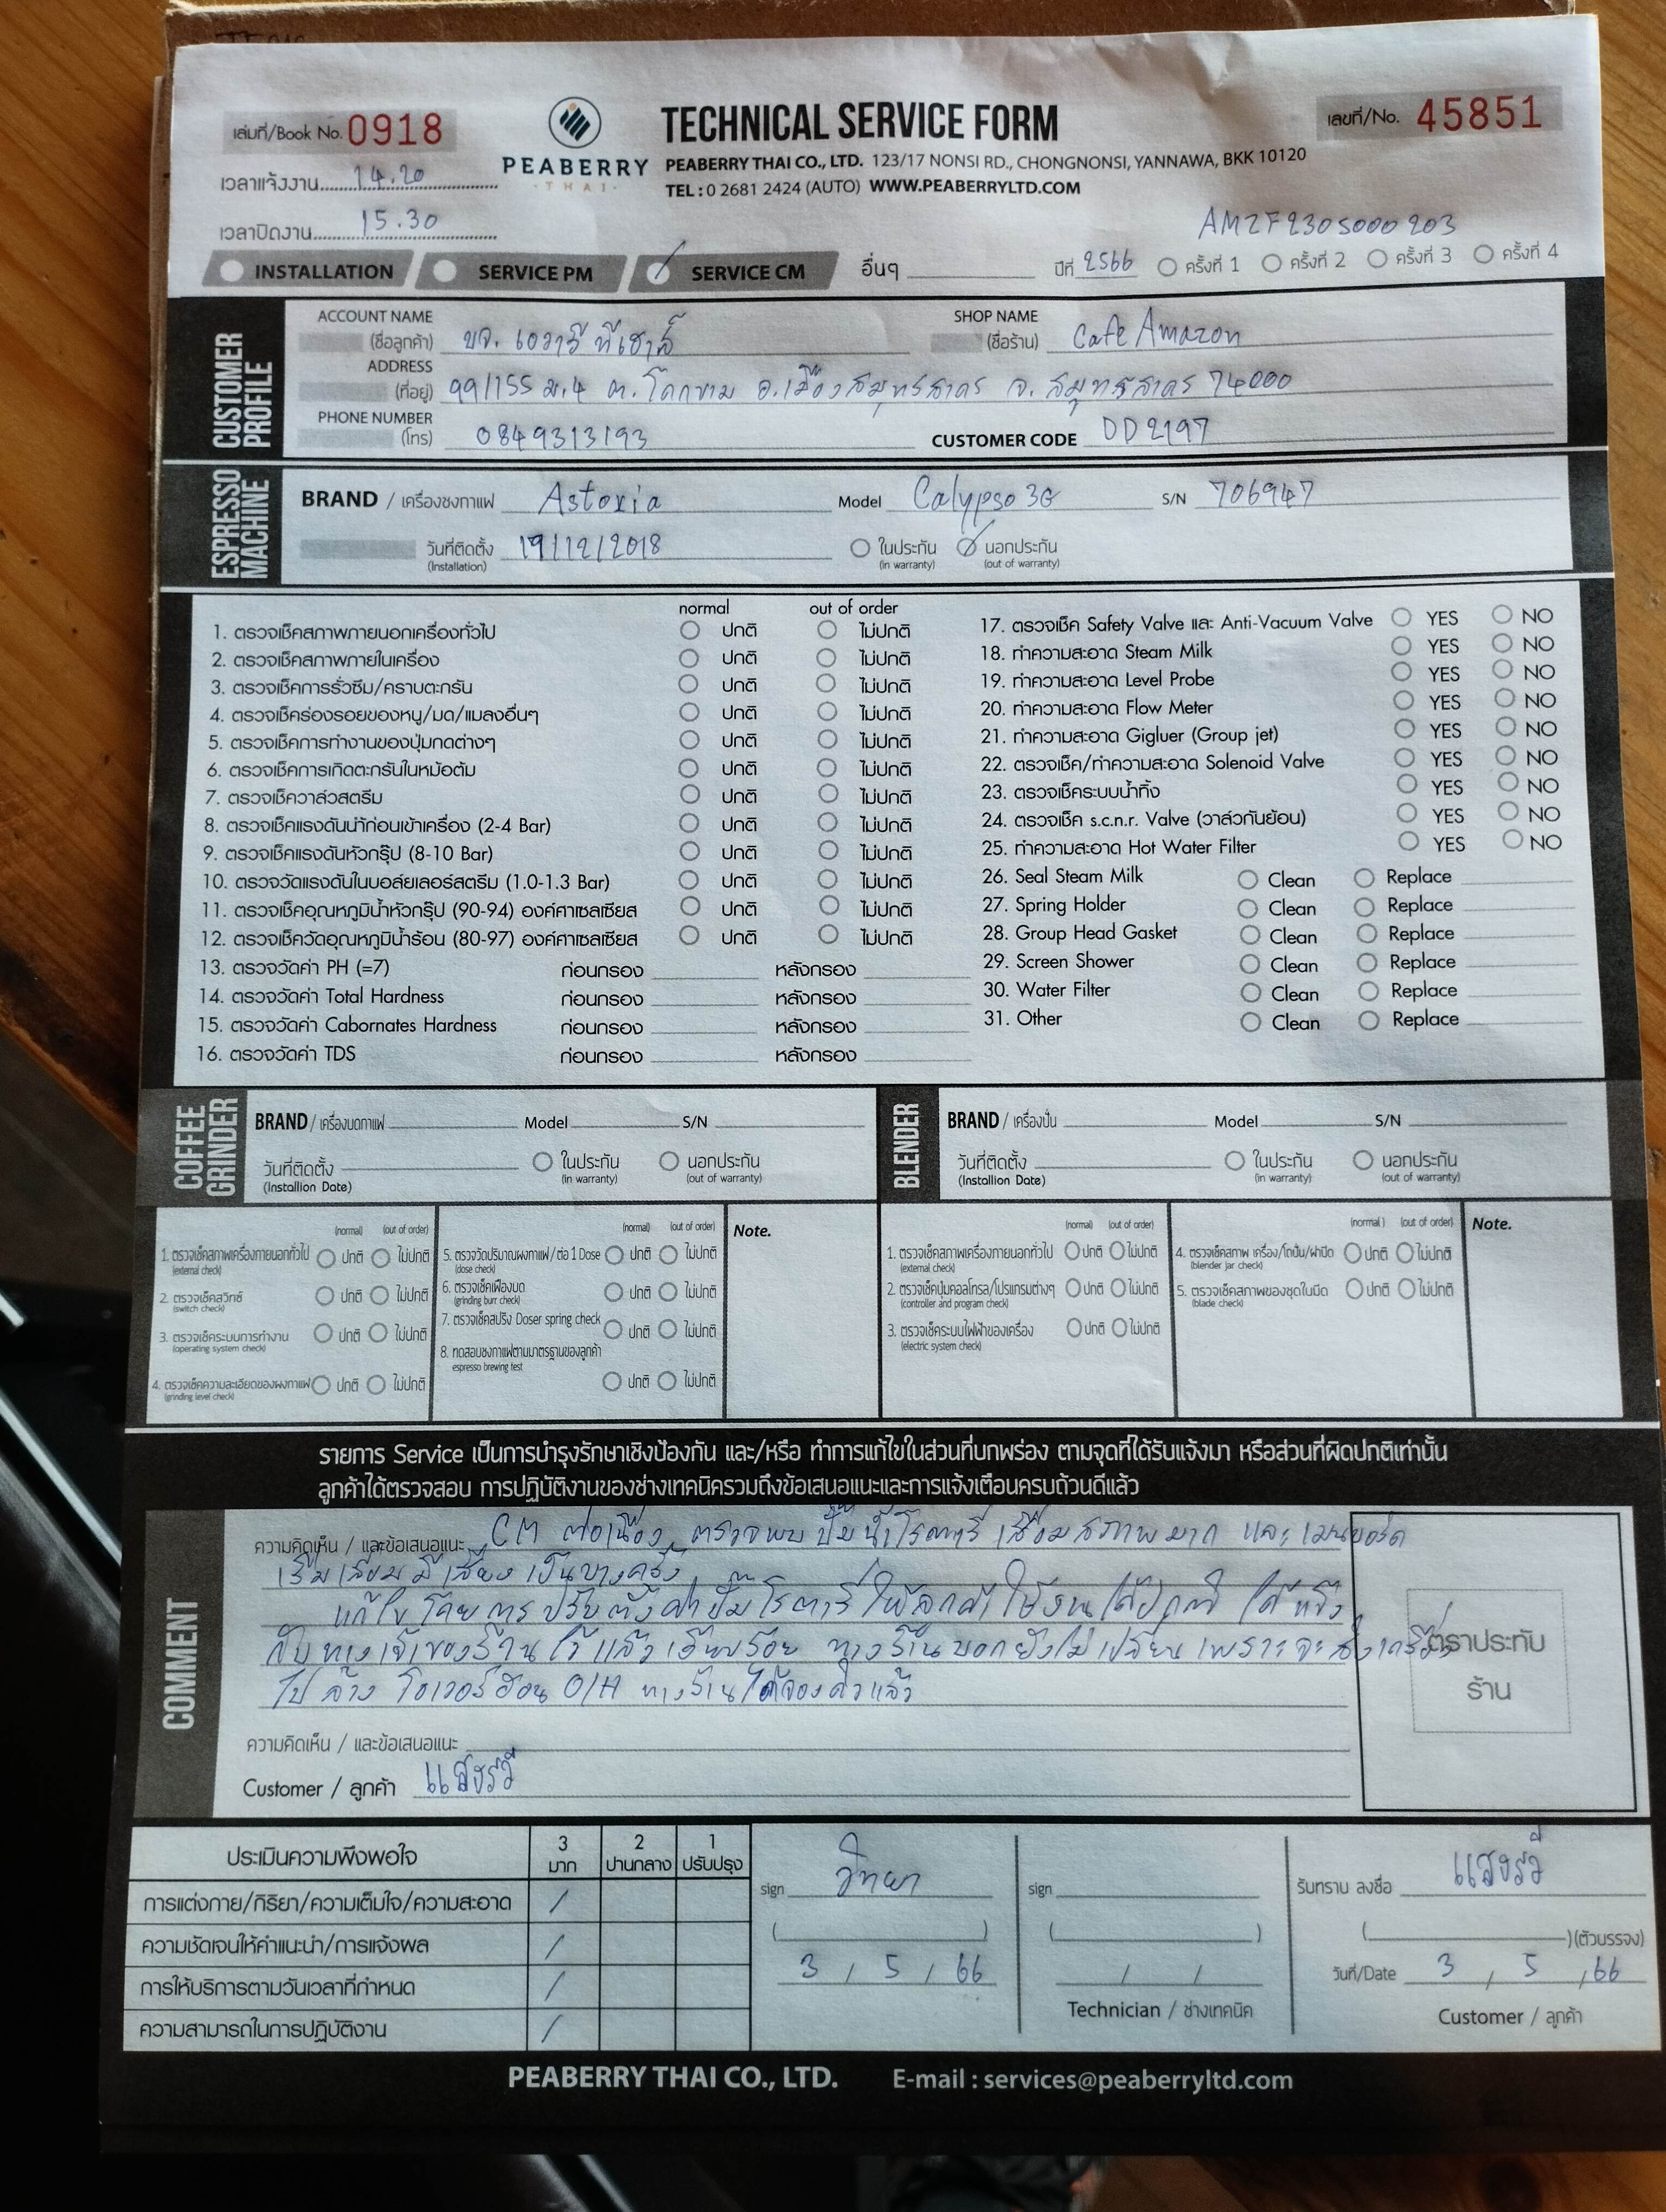 เล่มที่/Book No. 0918
PEABERRY
THAI
TECHNICAL SERVICE FORM
PEABERRY THAI CO., LTD. 123/17 NONSI RD., CHONGNONSI, YANNAWA, BKK 10120
TEL : 0 2681 2424 (AUTO) WWW.PEABERRYLTD.COM
เลขที่/No. 45851
เวลาแจ้งงาน 14.20
เวลาปิดงาน 15.30
AMZF2305000203
INSTALLATION SERVICE PM SERVICE CM อื่นๆ ปีที่ 2566 ครั้งที่ 1 ครั้งที่ 2 ครั้งที่ 3 ครั้งที่ 4
CUSTOMER PROFILE
ACCOUNT NAME (ชื่อลูกค้า) บจ.
SHOP NAME (ชื่อร้าน) Cafe Amazon
ADDRESS (ที่อยู่) 99/155 ม.4 ต.โคกขาม อ.เมืองสมุทรสาคร จ.สมุทรสาคร 74000
PHONE NUMBER (โทร) 0849313193 CUSTOMER CODE DD2197
ESPRESSO MACHINE
BRAND / เครื่องชงกาแฟ Astoria Model Calypso 3G S/N 706947
วันที่ติดตั้ง (Installation) 19/12/2018 ในประกัน (in warranty) นอกประกัน (out of warranty)
normal out of order
1. ตรวจเช็คสภาพภายนอกเครื่องทั่วไป ปกติ ไม่ปกติ
2. ตรวจเช็คสภาพภายในเครื่อง ปกติ ไม่ปกติ
3. ตรวจเช็คการรั่วซึม/คราบตะกรัน ปกติ ไม่ปกติ
4. ตรวจเช็คร่องรอยของหนู/มด/แมลงอื่นๆ ปกติ ไม่ปกติ
5. ตรวจเช็คการทำงานของปุ่มกดต่างๆ ปกติ ไม่ปกติ
6. ตรวจเช็คการเกิดตะกรันในหม้อต้ม ปกติ ไม่ปกติ
7. ตรวจเช็ควาล์วสตรีม ปกติ ไม่ปกติ
8. ตรวจเช็คแรงดันน้ำก่อนเข้าเครื่อง (2-4 Bar) ปกติ ไม่ปกติ
9. ตรวจเช็คแรงดันหัวกรุ๊ป (8-10 Bar) ปกติ ไม่ปกติ
10. ตรวจวัดแรงดันในบอล์ยเลอร์สตรีม (1.0-1.3 Bar) ปกติ ไม่ปกติ
11. ตรวจเช็คอุณหภูมิน้ำหัวกรุ๊ป (90-94) องค์ศาเซลเซียส ปกติ ไม่ปกติ
12. ตรวจเช็ควัดอุณหภูมิน้ำร้อน (80-97) องค์ศาเซลเซียส ปกติ ไม่ปกติ
13. ตรวจวัดค่า PH (=7) ก่อนกรอง หลังกรอง
14. ตรวจวัดค่า Total Hardness ก่อนกรอง หลังกรอง
15. ตรวจวัดค่า Cabornates Hardness ก่อนกรอง หลังกรอง
16. ตรวจวัดค่า TDS ก่อนกรอง หลังกรอง
17. ตรวจเช็ค Safety Valve และ Anti-Vacuum Valve YES NO
18. ทำความสะอาด Steam Milk YES NO
19. ทำความสะอาด Level Probe YES NO
20. ทำความสะอาด Flow Meter YES NO
21. ทำความสะอาด Gigluer (Group jet) YES NO
22. ตรวจเช็ค/ทำความสะอาด Solenoid Valve YES NO
23. ตรวจเช็คระบบน้ำทิ้ง YES NO
24. ตรวจเช็ค s.c.n.r. Valve (วาล์วกันย้อน) YES NO
25. ทำความสะอาด Hot Water Filter YES NO
26. Seal Steam Milk Clean Replace
27. Spring Holder Clean Replace
28. Group Head Gasket Clean Replace
29. Screen Shower Clean Replace
30. Water Filter Clean Replace
31. Other Clean Replace
COFFEE GRINDER
BRAND / เครื่องบดกาแฟ Model S/N
วันที่ติดตั้ง (Installion Date) ในประกัน (in warranty) นอกประกัน (out of warranty)
BLENDER
BRAND / เครื่องปั่น Model S/N
วันที่ติดตั้ง (Installion Date) ในประกัน (in warranty) นอกประกัน (out of warranty)
(normal) (out of order)
1. ตรวจเช็คสภาพเครื่องภายนอกทั่วไป (external check) ปกติ ไม่ปกติ
2. ตรวจเช็คสวิทซ์ (switch check) ปกติ ไม่ปกติ
3. ตรวจเช็คระบบการทำงาน (operating system check) ปกติ ไม่ปกติ
4. ตรวจเช็คความละเอียดของผงกาแฟ (grinding level check) ปกติ ไม่ปกติ
(normal) (out of order)
5. ตรวจวัดปริมาณผงกาแฟ/ต่อ 1 Dose (dose check) ปกติ ไม่ปกติ
6. ตรวจเช็คเฟืองบด (grinding burr check) ปกติ ไม่ปกติ
7. ตรวจเช็คสปริง Doser spring check ปกติ ไม่ปกติ
8. ทดสอบชงกาแฟตามมาตรฐานของลูกค้า espresso brewing test ปกติ ไม่ปกติ
Note.
(normal) (out of order)
1. ตรวจเช็คสภาพเครื่องภายนอกทั่วไป (external check) ปกติ ไม่ปกติ
2. ตรวจเช็คปุ่มคอลโทรล/โปรแกรมต่างๆ (controller and program check) ปกติ ไม่ปกติ
3. ตรวจเช็คระบบไฟฟ้าของเครื่อง (electric system check) ปกติ ไม่ปกติ
(normal ) (out of order)
4. ตรวจเช็คสภาพ เครื่อง/โถปั่น/ฝาปิด (blender jar check) ปกติ ไม่ปกติ
5. ตรวจเช็คสภาพของชุดใบมีด (blade check) ปกติ ไม่ปกติ
Note.
รายการ Service เป็นการบำรุงรักษาเชิงป้องกัน และ/หรือ ทำการแก้ไขในส่วนที่บกพร่อง ตามจุดที่ได้รับแจ้งมา หรือส่วนที่ผิดปกติเท่านั้น
ลูกค้าได้ตรวจสอบ การปฏิบัติงานของช่างเทคนิครวมถึงข้อเสนอแนะและการแจ้งเตือนครบถ้วนดีแล้ว
COMMENT
ความคิดเห็น / และข้อเสนอแนะ CM ต่อเนื่อง ตรวจพบ ปั๊มน้ำโรตารี่ เสื่อมสภาพมาก และ เมนบอร์ด
เริ่ม มีเสียง เป็นบางครั้ง
แก้ไขโดยการปรับตั้งค่าปั๊มโรตารี่ ให้ลูกค้าใช้งานได้ปกติ ได้แจ้ง
กับทางเจ้าของร้านไว้แล้วเรียบร้อย ทางร้านบอกยังไม่เปลี่ยน เพราะจะส่งเครื่อง
ไปล้าง โอเวอร์ฮอน O/H ทางร้านได้จองคิวแล้ว
ตราประทับ
ร้าน
ความคิดเห็น / และข้อเสนอแนะ
Customer / ลูกค้า แสงรวี
ประเมินความพึงพอใจ 3 มาก 2 ปานกลาง 1 ปรับปรุง
การแต่งกาย/กิริยา/ความเต็มใจ/ความสะอาด /
ความชัดเจนให้คำแนะนำ/การแจ้งผล /
การให้บริการตามวันเวลาที่กำหนด /
ความสามารถในการปฏิบัติงาน /
sign วิทยา
( )
3 / 5 / 66
sign
( )
/ /
Technician / ช่างเทคนิค
รับทราบ ลงชื่อ แสงรวี
( ) (ตัวบรรจง)
วันที่/Date 3 / 5 / 66
Customer / ลูกค้า
PEABERRY THAI CO., LTD. E-mail : services@peaberryltd.com